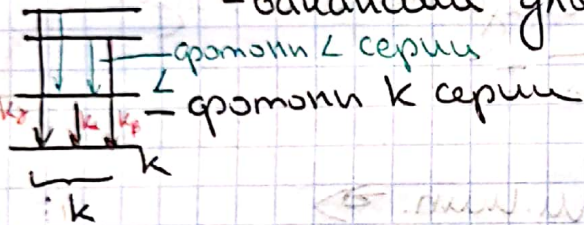 - вакансии
фотони L серии
L
Kγ Kα Kβ - фотони K серии
K
K